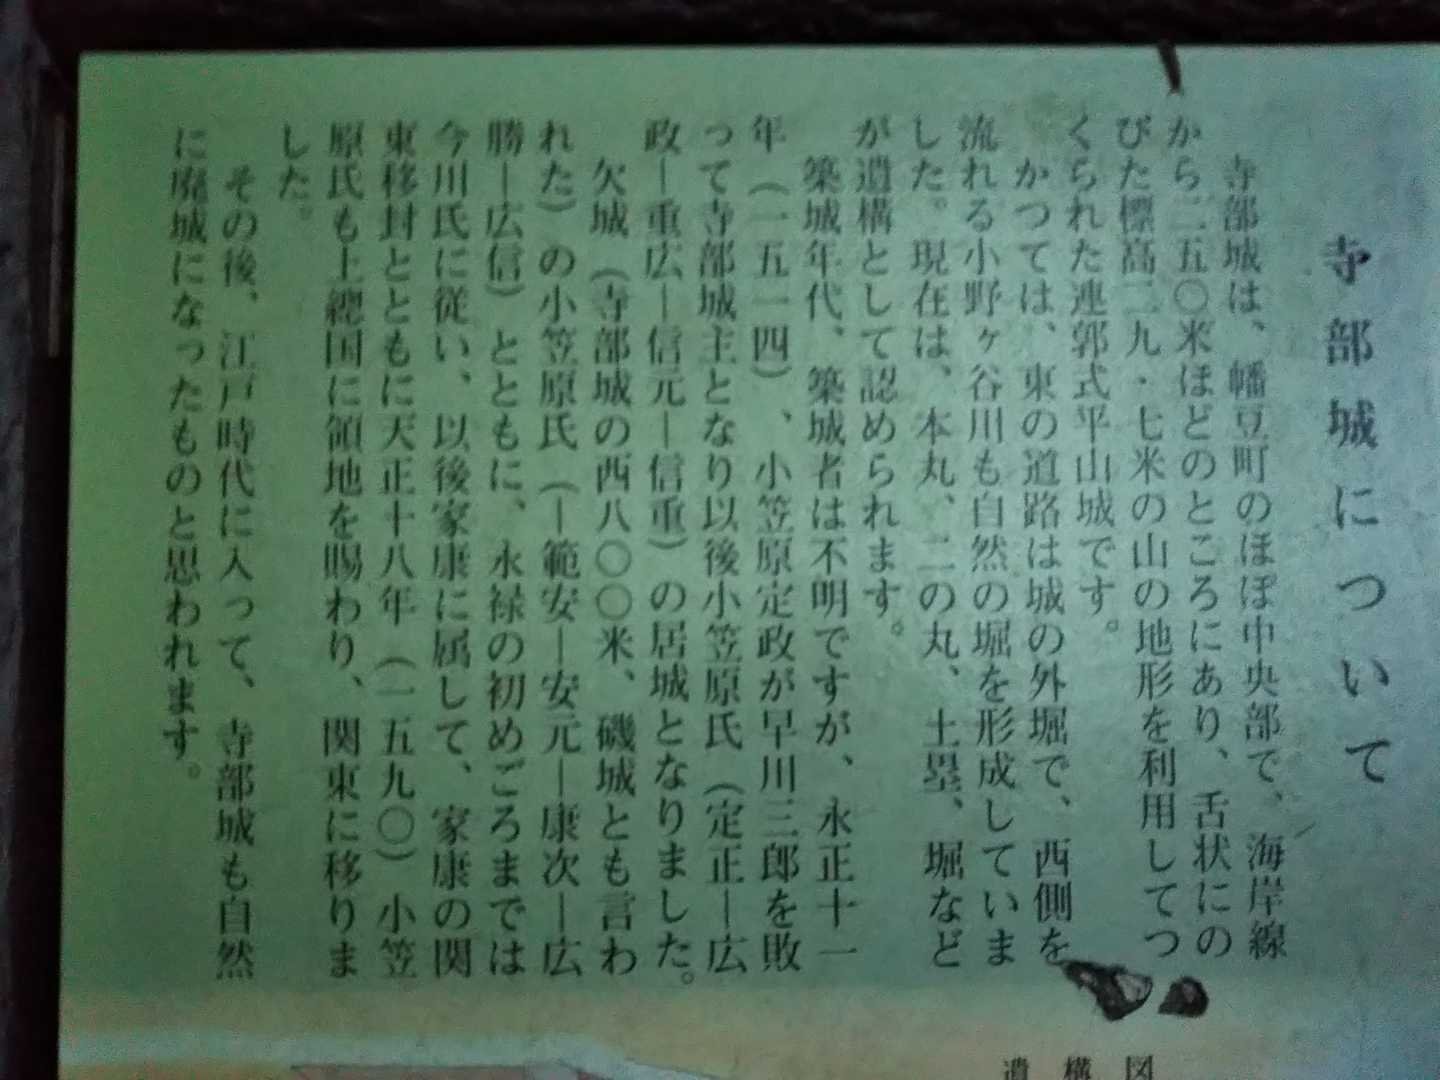 寺部城について
寺部城は、幡豆町のほぼ中央部で、海岸線
から二五〇米ほどのところにあり、舌状にの
びた標高二九・七米の山の地形を利用してつ
くられた連郭式平山城です。
かつては、東の道路は城の外堀で、西側を
流れる小野ヶ谷川も自然の堀を形成していま
した。現在は、本丸、二の丸、土塁、堀など
が遺構として認められます。
築城年代、築城者は不明ですが、永正十一
年（一五一四）、小笠原定政が早川三郎を敗
って寺部城主となり以後小笠原氏（定正―広
政―重広―信元―信重）の居城となりました。
欠城（寺部城の西八〇〇米、磯城とも言わ
れた）の小笠原氏（―範安―安元―康次―広
勝―広信）とともに、永禄の初めごろまでは
今川氏に従い、以後家康に属して、家康の関
東移封とともに天正十八年（一五九〇）小笠
原氏も上總国に領地を賜わり、関東に移りま
した。
その後、江戸時代に入って、寺部城も自然
に廃城になったものと思われます。
遺構図